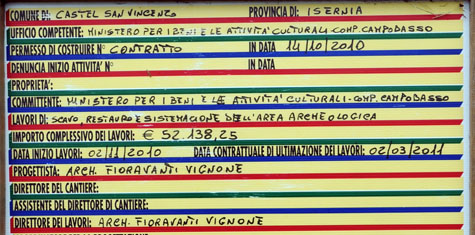 COMUNE DI: CASTEL SAN VINCENZO PROVINCIA DI: ISERNIA
UFFICIO COMPETENTE: MINISTERO PER I BENI E LE ATTIVITA' CULTURALI-COMP. CAMPOBASSO
PERMESSO DI COSTRUIRE N° CONTRATTO IN DATA 14/10/2010
DENUNCIA INIZIO ATTIVITA' N° IN DATA
PROPRIETA':
COMMITTENTE: MINISTERO PER I BENI E LE ATTIVITA' CULTURALI-COMP. CAMPOBASSO
LAVORI DI: SCAVO, RESTAURO E SISTEMAZIONE DELL'AREA ARCHEOLOGICA
IMPORTO COMPLESSIVO DEI LAVORI: € 52.138,25
DATA INIZIO LAVORI: 02/11/2010 DATA CONTRATTUALE DI ULTIMAZIONE DEI LAVORI: 02/03/2011
PROGETTISTA: ARCH. FIORAVANTI VIGNONE
DIRETTORE DEL CANTIERE:
ASSISTENTE DEL DIRETTORE DI CANTIERE:
DIRETTORE DEI LAVORI: ARCH. FIORAVANTI VIGNONE